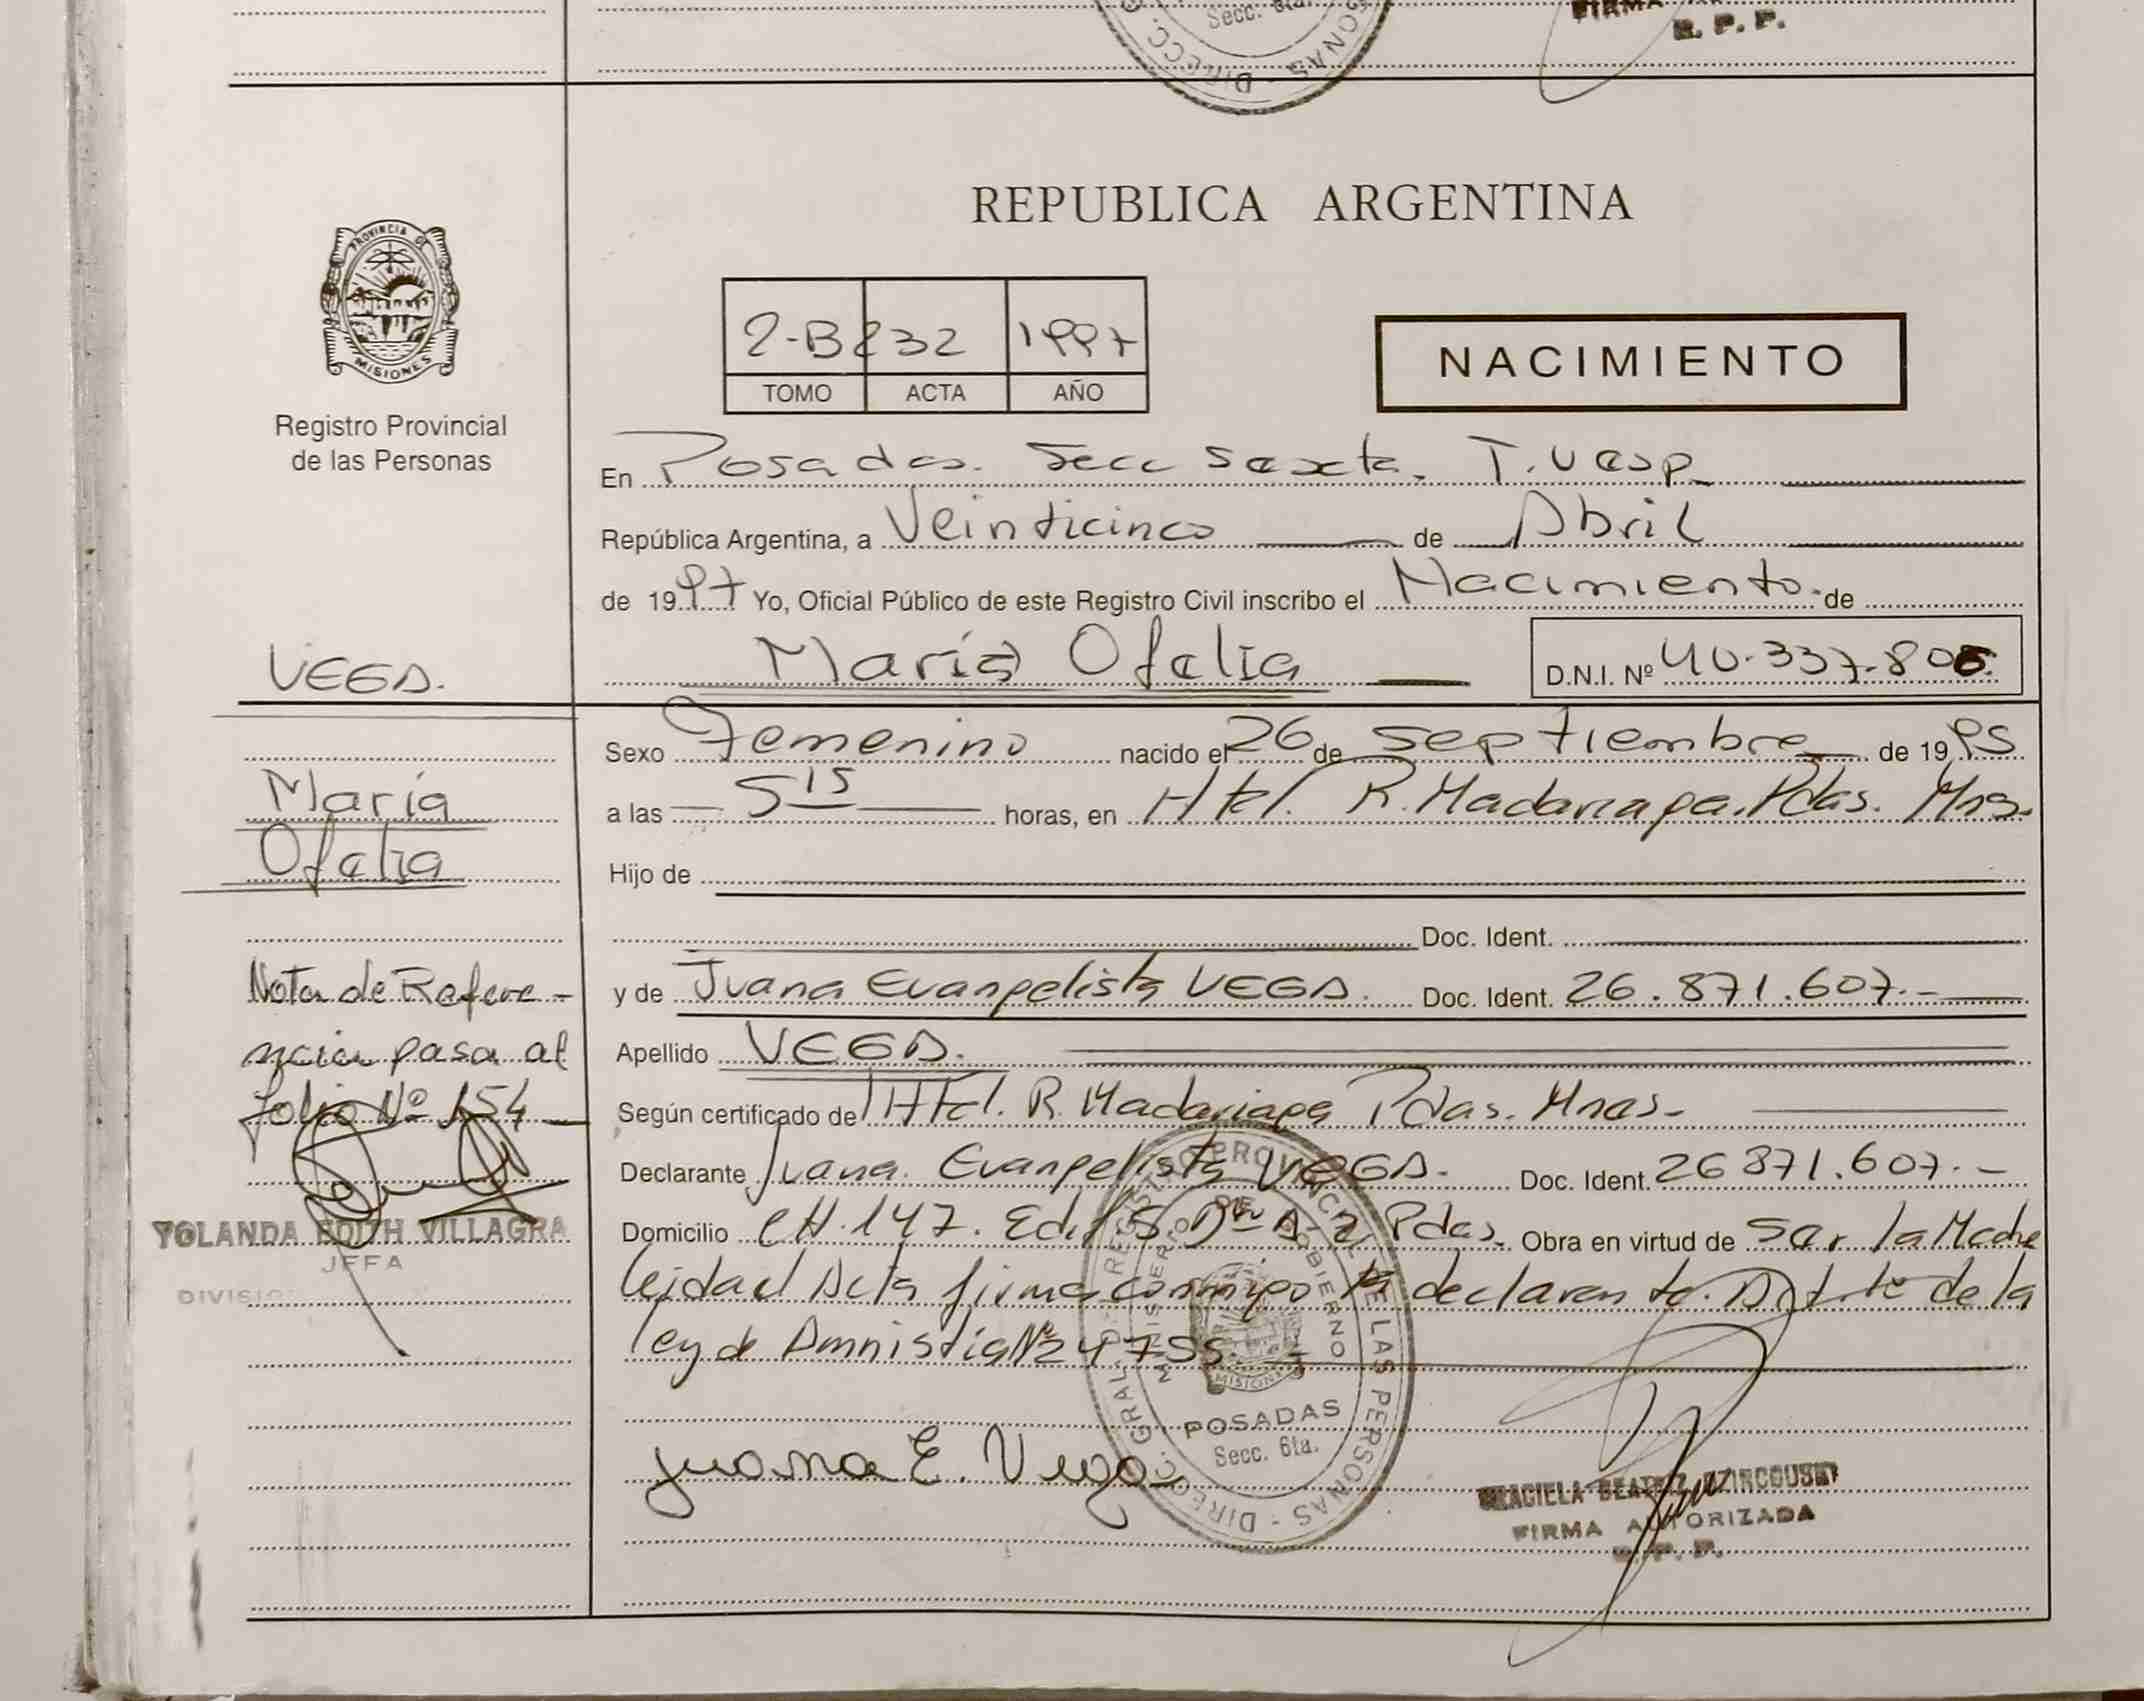 Secc. 6ta.
DIRECC. G
ONAS
FIRMA
R. P. P.
PROVINCIA DE
MISIONES
Registro Provincial
de las Personas
REPUBLICA ARGENTINA
2-B 232 1997
TOMO ACTA AÑO
NACIMIENTO
En Posadas. Secc Sexta. T. Vesp.
República Argentina, a Veinticinco de Abril
de 1997 Yo, Oficial Público de este Registro Civil inscribo el Nacimiento. de
María Ofelia D.N.I. Nº 40.337.806.
VEGA.
María
Ofelia
Nota de Refere-
ncia pasa al
folio Nº 154
YOLANDA EDITH VILLAGRA
JEFA
DIVISION
Sexo Femenino nacido el 26 de Septiembre de 1995
a las 5 15 horas, en Htel. R. Madariaga. Pdas. Mns.
Hijo de
Doc. Ident.
y de Juana Evangelista VEGA. Doc. Ident. 26.871.607.-
Apellido VEGA.
Según certificado de Htel. R. Madariaga Pdas. Mnes-
Declarante Juana Evangelista VEGA. Doc. Ident. 26 871.607.-
Domicilio CH. 147. Edif 5 Pdas. Obra en virtud de Ser la Madre
Leida el Acta firma conmigo la declarante. de la
ley de Amnistía Nº 24755.
DIRECC. GRAL. DE REGISTRO PROVINCIAL DE LAS PERSONAS
MINISTERIO DE GOBIERNO
MISIONES
POSADAS
Secc. 6ta.
Juana E. Vega
GRACIELA BEATRIZ
FIRMA AUTORIZADA
R. P. P.